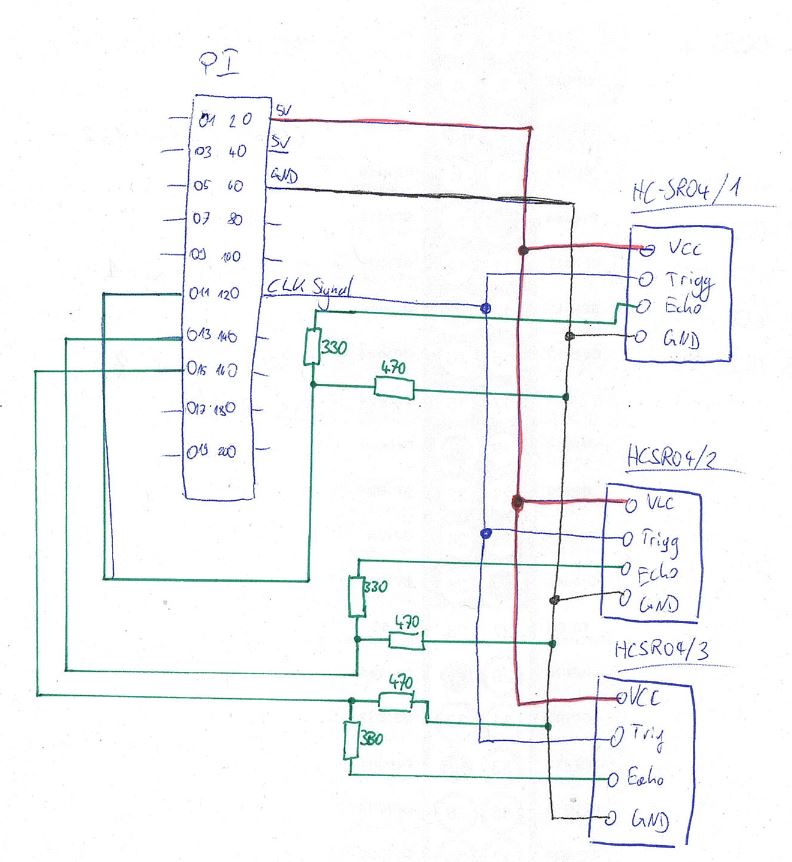 PI
01 20
5V
03 40
5V
05 60
GND
07 80
09 100
011 120
CLK Signal
013 140
015 160
017 180
019 200
HC-SR04/1
VCC
Trigg
Echo
GND
330
470
HCSR04/2
VCC
Trigg
Echo
GND
330
470
HCSR04/3
VCC
Trig
Echo
GND
470
330